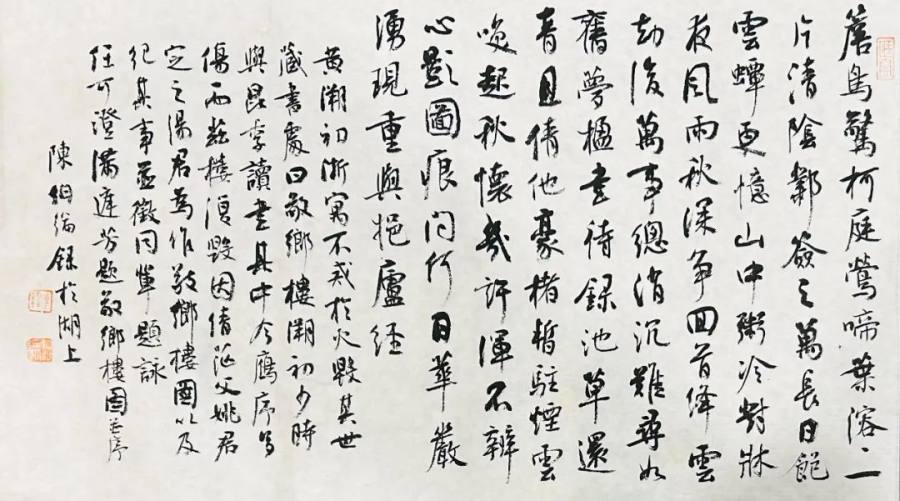 簷鳥驚柯庭鶯啼葉溶二
片清陰鄴簽之萬長日飽
雲蟫更憶山中粥冷對牀
夜風雨秋深爭回首絳雲
劫後萬事總消沉難尋如
舊夢楹書待錄池草還
青且倩他豪楮暫駐煙雲
喚起秋懷幾許渾不辨
心影圖痕問何日華嚴
湧現重與挹廬經
黃溯初浙寓不戒於火毀其世
藏書處曰敬鄉樓溯初少時
與昆季讀書其中今鴈序多
傷而茲樓復毀因倩茫父姚君
定之湯君為作敬鄉樓圖以及
紀其事並徵同輩題詠
任可澄滿庭芳題敬鄉樓圖并序
陳 錄於湖上